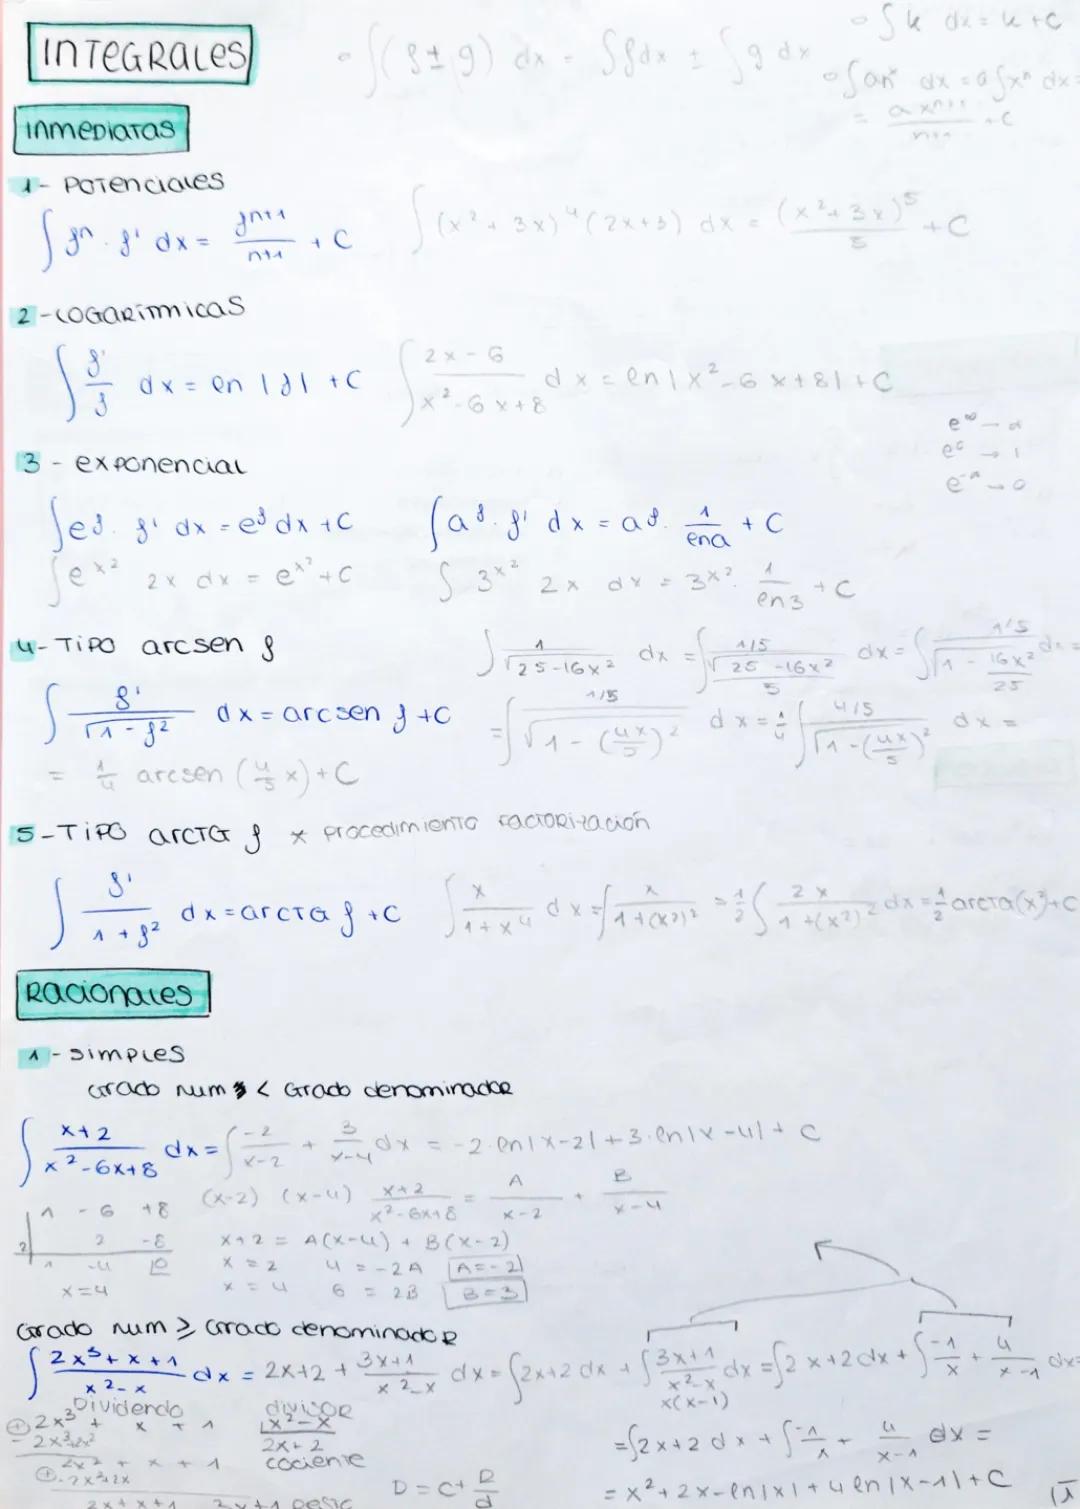 INTEGRALES
∫(f ± g) dx = ∫f dx ± ∫g dx
∫k dx = k + C
∫axⁿ dx = a∫xⁿ dx =
= a xⁿ⁺¹ / n+1 + C
INMEDIATAS
1- POTENCIALES
∫fⁿ · f' dx = fⁿ⁺¹ / n+1 + C
∫(x² + 3x)⁴ (2x+3) dx = (x² + 3x)⁵ / 5 + C
2 - LOGARÍTMICAS
∫ f'/f dx = ln |f| + C
∫ 2x - 6 / x² - 6x + 8 dx = ln |x² - 6x + 8| + C
e^∞ →
e⁰ → 1
→ 0
3 - EXPONENCIAL
∫e^f · f' dx = e^f dx + C
∫a^f · f' dx = a^f · 1/lna + C
∫e^x² 2x dx = e^x² + C
∫3^x² 2x dx = 3^x² · 1/ln3 + C
4- TIPO arcsen f
∫ 1/√25-16x² dx = ∫ 1/5 / √25-16x² / 5 dx = ∫ 1/5 / √1 - 16x²/25 dx =
∫ f' / √1 - f² dx = arcsen f + C
= ∫ 1/5 / √1 - (4x/5)² dx = 1/4 ∫ 4/5 / √1 - (4x/5)² dx =
= 1/4 arcsen (4/5 x) + C
5- TIPO ARCTG f * Procedimiento Factorización
∫ f' / 1 + f² dx = arctg f + C
∫ x / 1 + x⁴ dx = ∫ x / 1 + (x²)² = 1/2 ∫ 2x / 1 + (x²)² dx = 1/2 arctg(x²) + C
RACIONALES
1 - SIMPLES
Grado num < Grado denominador
∫ x+2 / x² - 6x + 8 dx = ∫ -2 / x-2 + 3 / x-4 dx = -2 · ln|x-2| + 3 · ln|x-4| + C
(x-2) (x-4)
x+2 / x² - 6x + 8 = A / x-2 + B / x-4
1 -6 +8
2 2 -8
1 -4 |0
x=4
x+2 = A(x-4) + B(x-2)
x = 2 4 = -2A A = -2
x = 4 6 = 2B B = 3
Grado num ≥ Grado denominador
∫ 2x³ + x + 1 / x² - x dx = 2x+2 + 3x+1 / x² - x dx = ∫2x+2 dx + ∫ 3x+1 / x² - x dx = ∫2x+2 dx + ∫ -1/x + 4 / x-1 dx =
x(x-1)
Dividendo divisor
2x³ + x + 1 x² - x
- 2x³+2x² 2x+2
2x² + x + 1 cociente
-2x²+2x
2x + x + 1 3x+1 resto
D = C + R/d
= ∫2x+2 dx + ∫ -1/x + 4 / x-1 dx =
= x² + 2x - ln|x| + 4 ln|x-1| + C